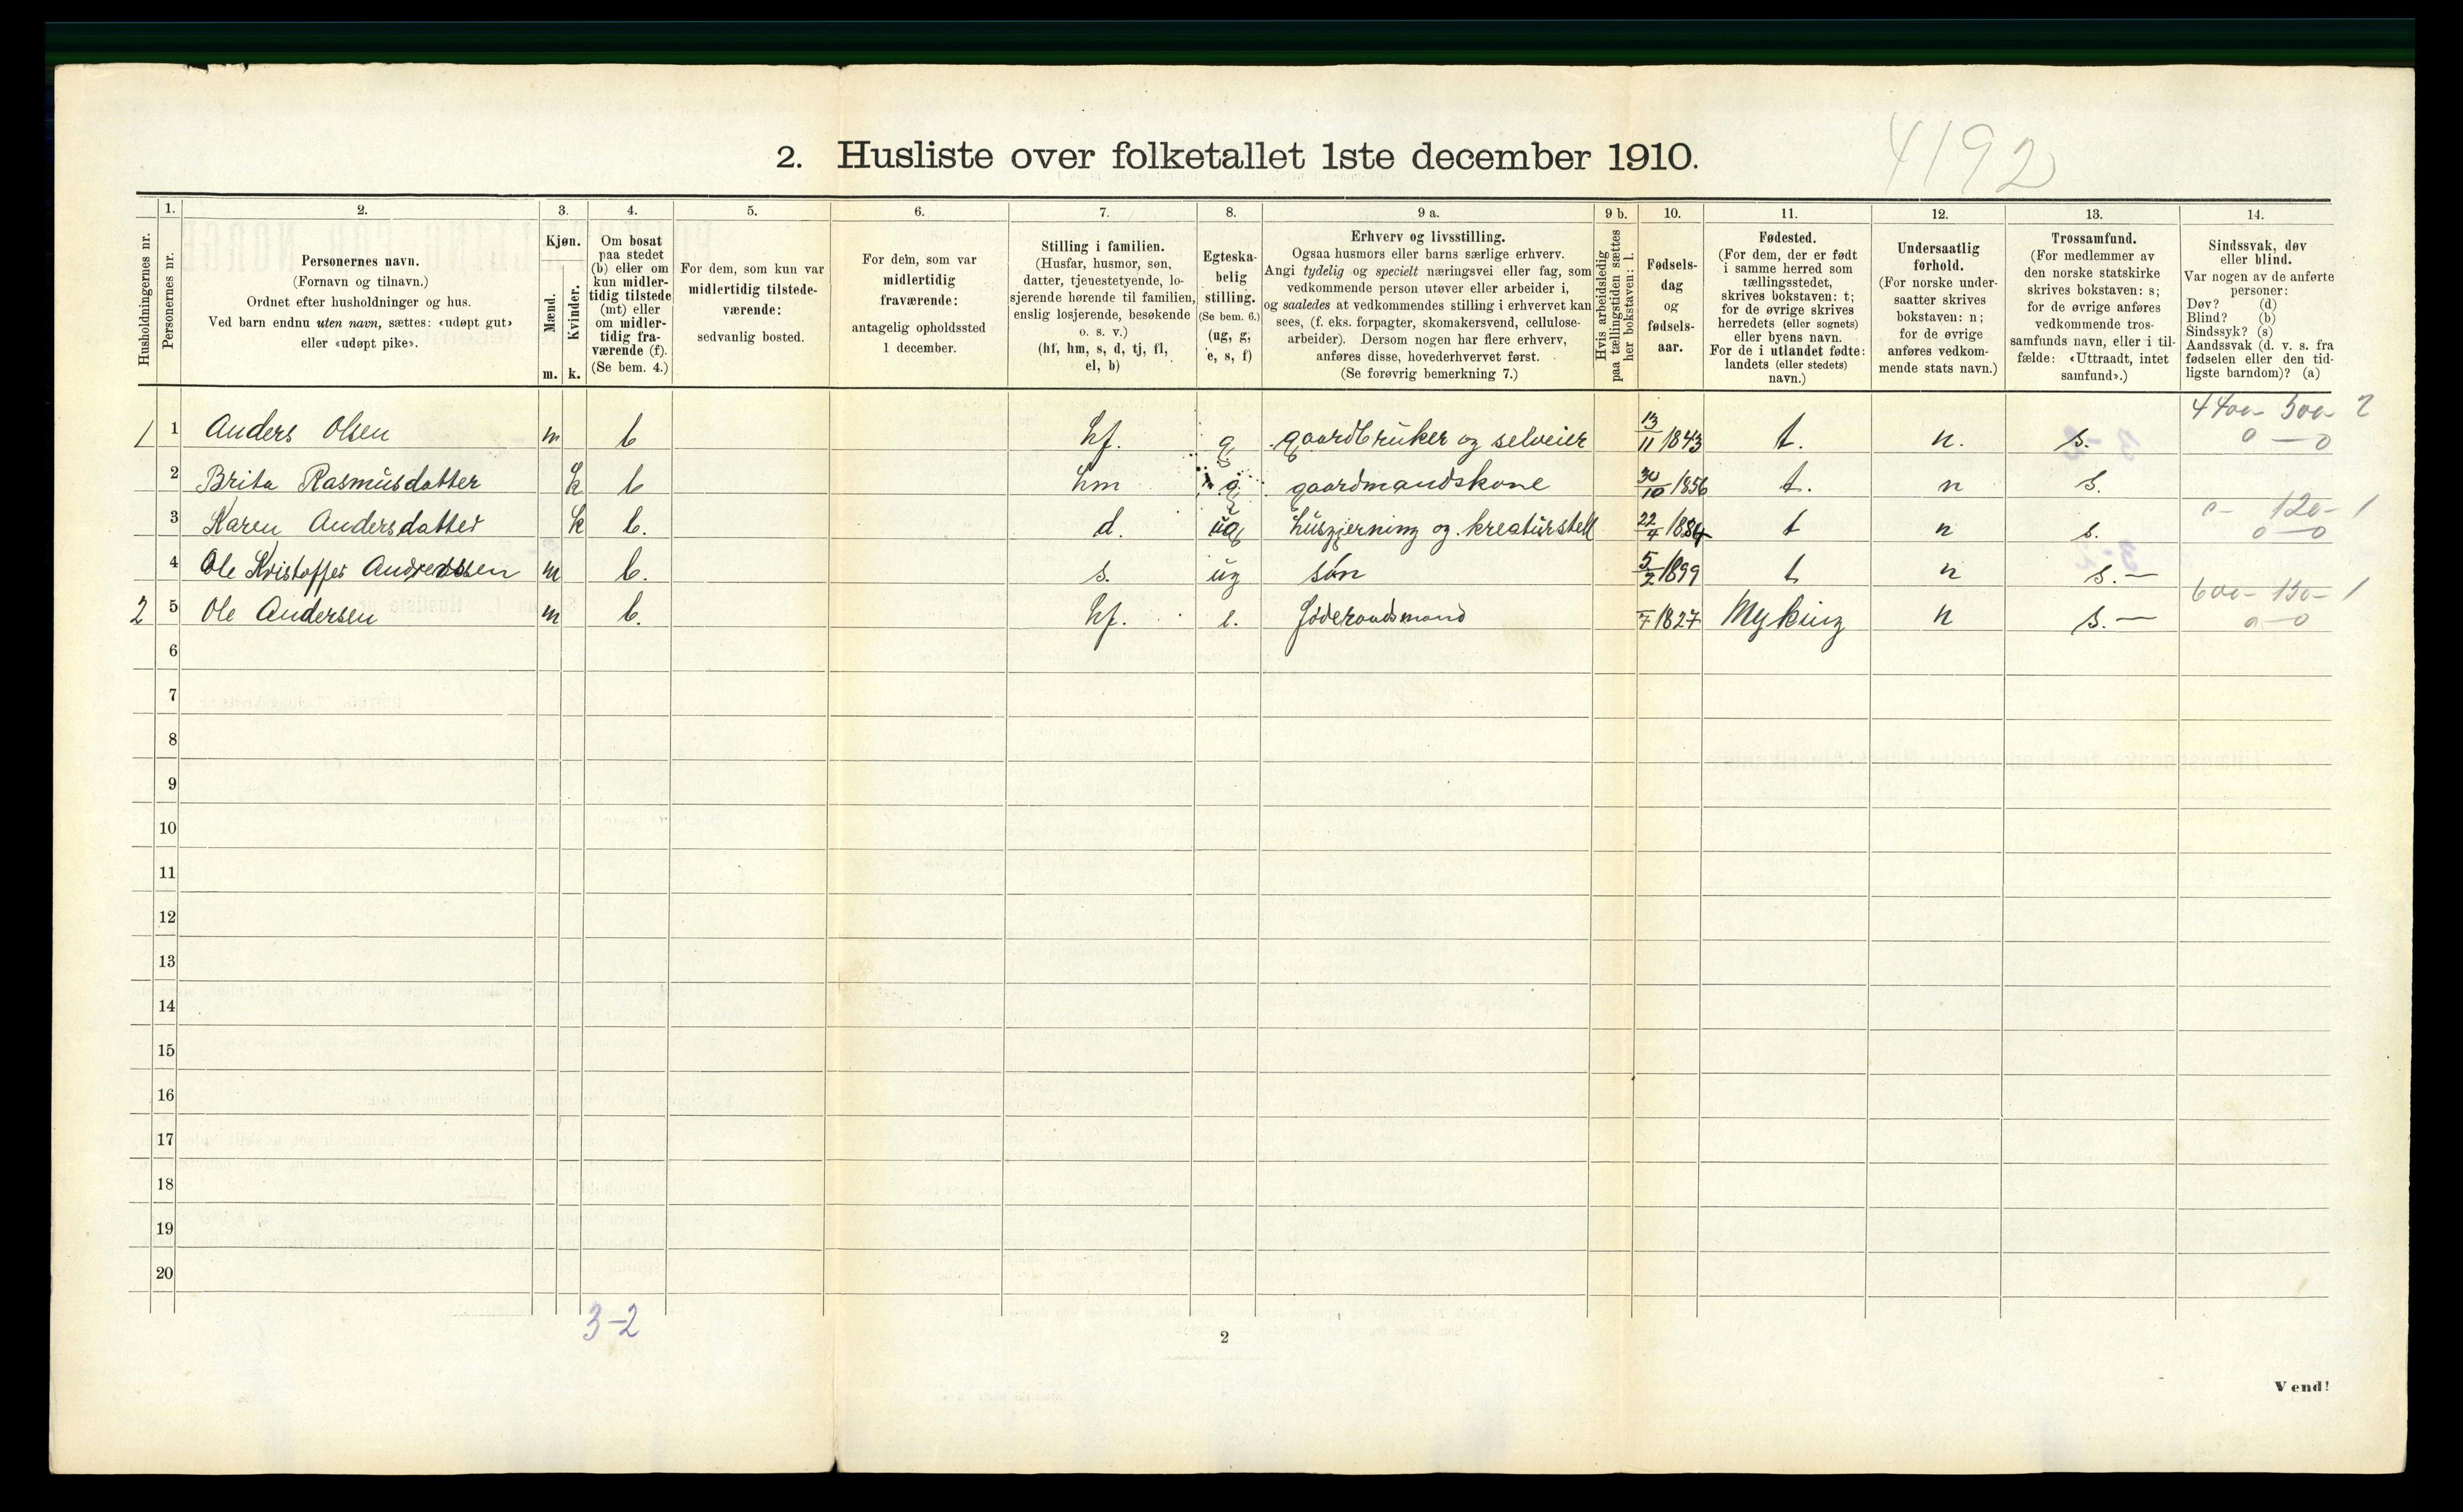 4192
2. Husliste over folketallet 1ste december 1910.
Husholdningernes nr.
1.
Personernes nr.
2.
Personernes navn.
(Fornavn og tilnavn.)
Ordnet efter husholdninger og hus.
Ved barn endnu uten navn, sættes: «udøpt gut»
eller «udøpt pike».
3.
Kjøn.
Mænd.
Kvinder.
m. k.
4.
Om bosat
paa stedet
(b) eller om
kun midler-
tidig tilstede
(mt) eller
om midler-
tidig fra-
værende (f).
(Se bem. 4.)
5.
For dem, som kun var
midlertidig tilstede-
værende:
sedvanlig bosted.
6.
For dem, som var
midlertidig
fraværende:
antagelig opholdssted
1 december.
7.
Stilling i familien.
(Husfar, husmor, søn,
datter, tjenestetyende, lo-
sjerende hørende til familien,
enslig losjerende, besøkende
o. s. v.)
(hf, hm, s, d, tj, fl,
el, b)
8.
Egteska-
belig
stilling.
(Se bem. 6.)
(ug, g,
e, s, f)
9 a.
Erhverv og livsstilling.
Ogsaa husmors eller barns særlige erhverv.
Angi tydelig og specielt næringsvei eller fag, som
vedkommende person utøver eller arbeider i,
og saaledes at vedkommendes stilling i erhvervet kan
sees, (f. eks. forpagter, skomakersvend, cellulose-
arbeider). Dersom nogen har flere erhverv,
anføres disse, hovederhvervet først.
(Se forøvrig bemerkning 7.)
9 b.
Hvis arbeidsledig
paa tællingstiden sættes
her bokstaven: l.
10.
Fødsels-
dag
og
fødsels-
aar.
11.
Fødested.
(For dem, der er født
i samme herred som
tællingsstedet,
skrives bokstaven: t;
for de øvrige skrives
herredets (eller sognets)
eller byens navn.
For de i utlandet fødte:
landets (eller stedets)
navn.)
12.
Undersaatlig
forhold.
(For norske under-
saatter skrives
bokstaven: n;
for de øvrige
anføres vedkom-
mende stats navn.)
13.
Trossamfund.
(For medlemmer av
den norske statskirke
skrives bokstaven: s;
for de øvrige anføres
vedkommende tros-
samfunds navn, eller i til-
fælde: «Uttraadt, intet
samfund».)
14.
Sindssvak, døv
eller blind.
Var nogen av de anførte
personer:
Døv? (d)
Blind? (b)
Sindssyk? (s)
Aandssvak (d. v. s. fra
fødselen eller den tid-
ligste barndom)? (a)
4400- 500- 2
1 1 Anders Olsen m b hf. g gaardbruker og selveier 13/11 1843 t. n. s. 0 — 0
2 Brita Rasmusdatter k b hm g gaardmandskone 30/10 1856 t. n s.
0- 120- 1
3 Karen Andersdatter k b. d. ug husgjerning og kreaturstell 22/4 1884 t n s. 0 — 0
4 Ole Kristoffer Anderssen m b. s. ug søn 5/2 1899 t n s. —
600- 150- 1
2 5 Ole Andersen m b. hf. e. føderaadsmand /7 1827 Myking n s. — 0 — 0
6
7
8
9
10
11
12
13
14
15
16
17
18
19
20
3-2
2
Vend!